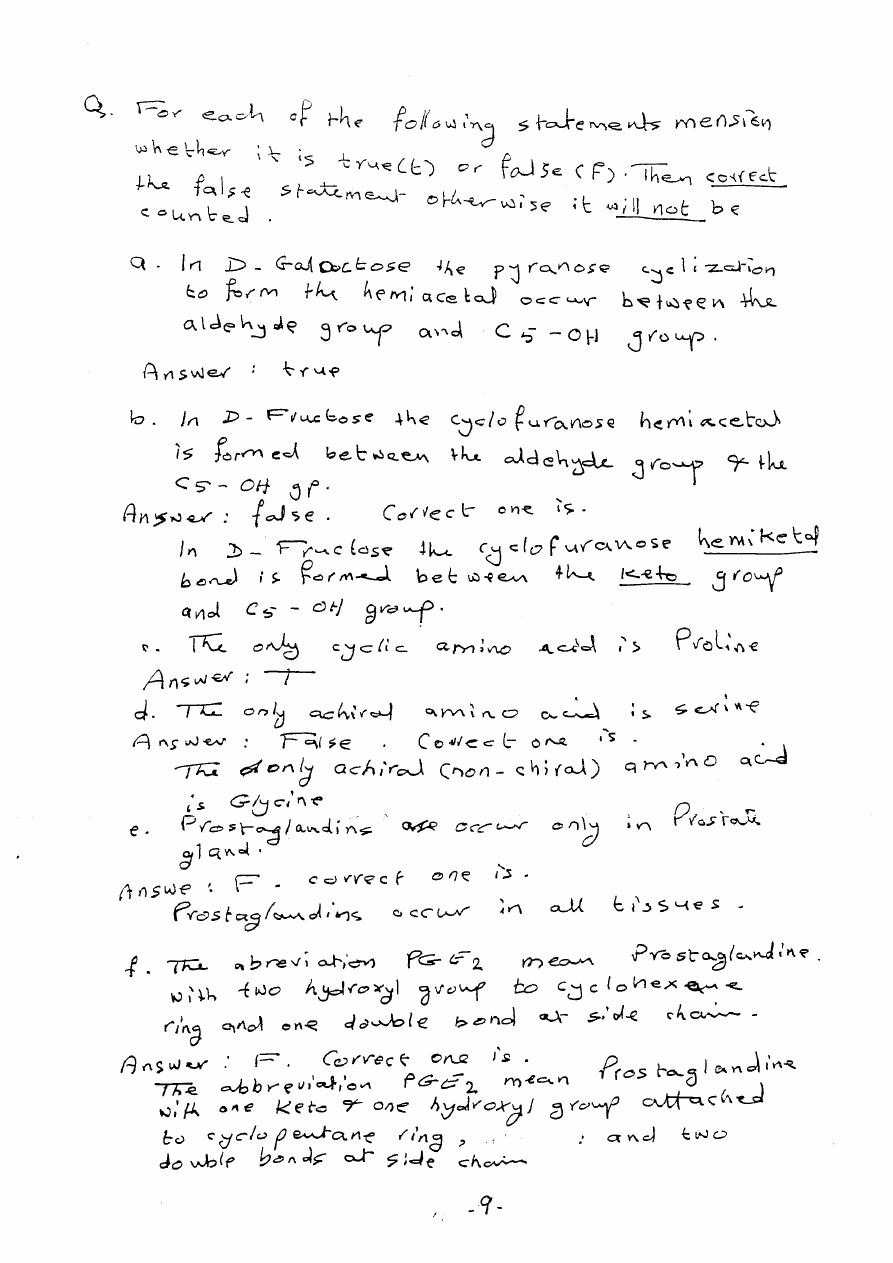 Q. For each of the following statements mension
whether it is true(t) or false (F). Then correct
the false statement otherwise it will not be
counted.
a. In D- Galactose the pyranose cyclization
to form the hemiacetal occur between the
aldehyde group and C5-OH group.
Answer : true
b. In D- Fructose the cyclofuranose hemiacetal
is formed between the aldehyde group & the
C5- OH gp.
Answer : false. Correct one is.
In D- Fructose the cyclofuranose hemiketal
bond is formed between the keto group
and C5 - OH group.
c. The only cyclic amino acid is Proline
Answer : T
d. The only achiral amino acid is serine
Answer : False . Correct one is.
The only achiral (non-chiral) amino acid
is Glycine
e. Prostaglandins are occur only in Prostate
gland.
Answe : F. correct one is.
Prostaglandins occur in all tissues.
f. The abreviation PGE2 mean Prostaglandine.
with two hydroxyl group to cyclohexane
ring and one double bond at side chain.
Answer : F. Correct one is.
The abbreviation PGE2 mean Prostaglandine
with one keto & one hydroxyl group attached
to cyclopentane ring, : and two
double bonds at side chain
-9-